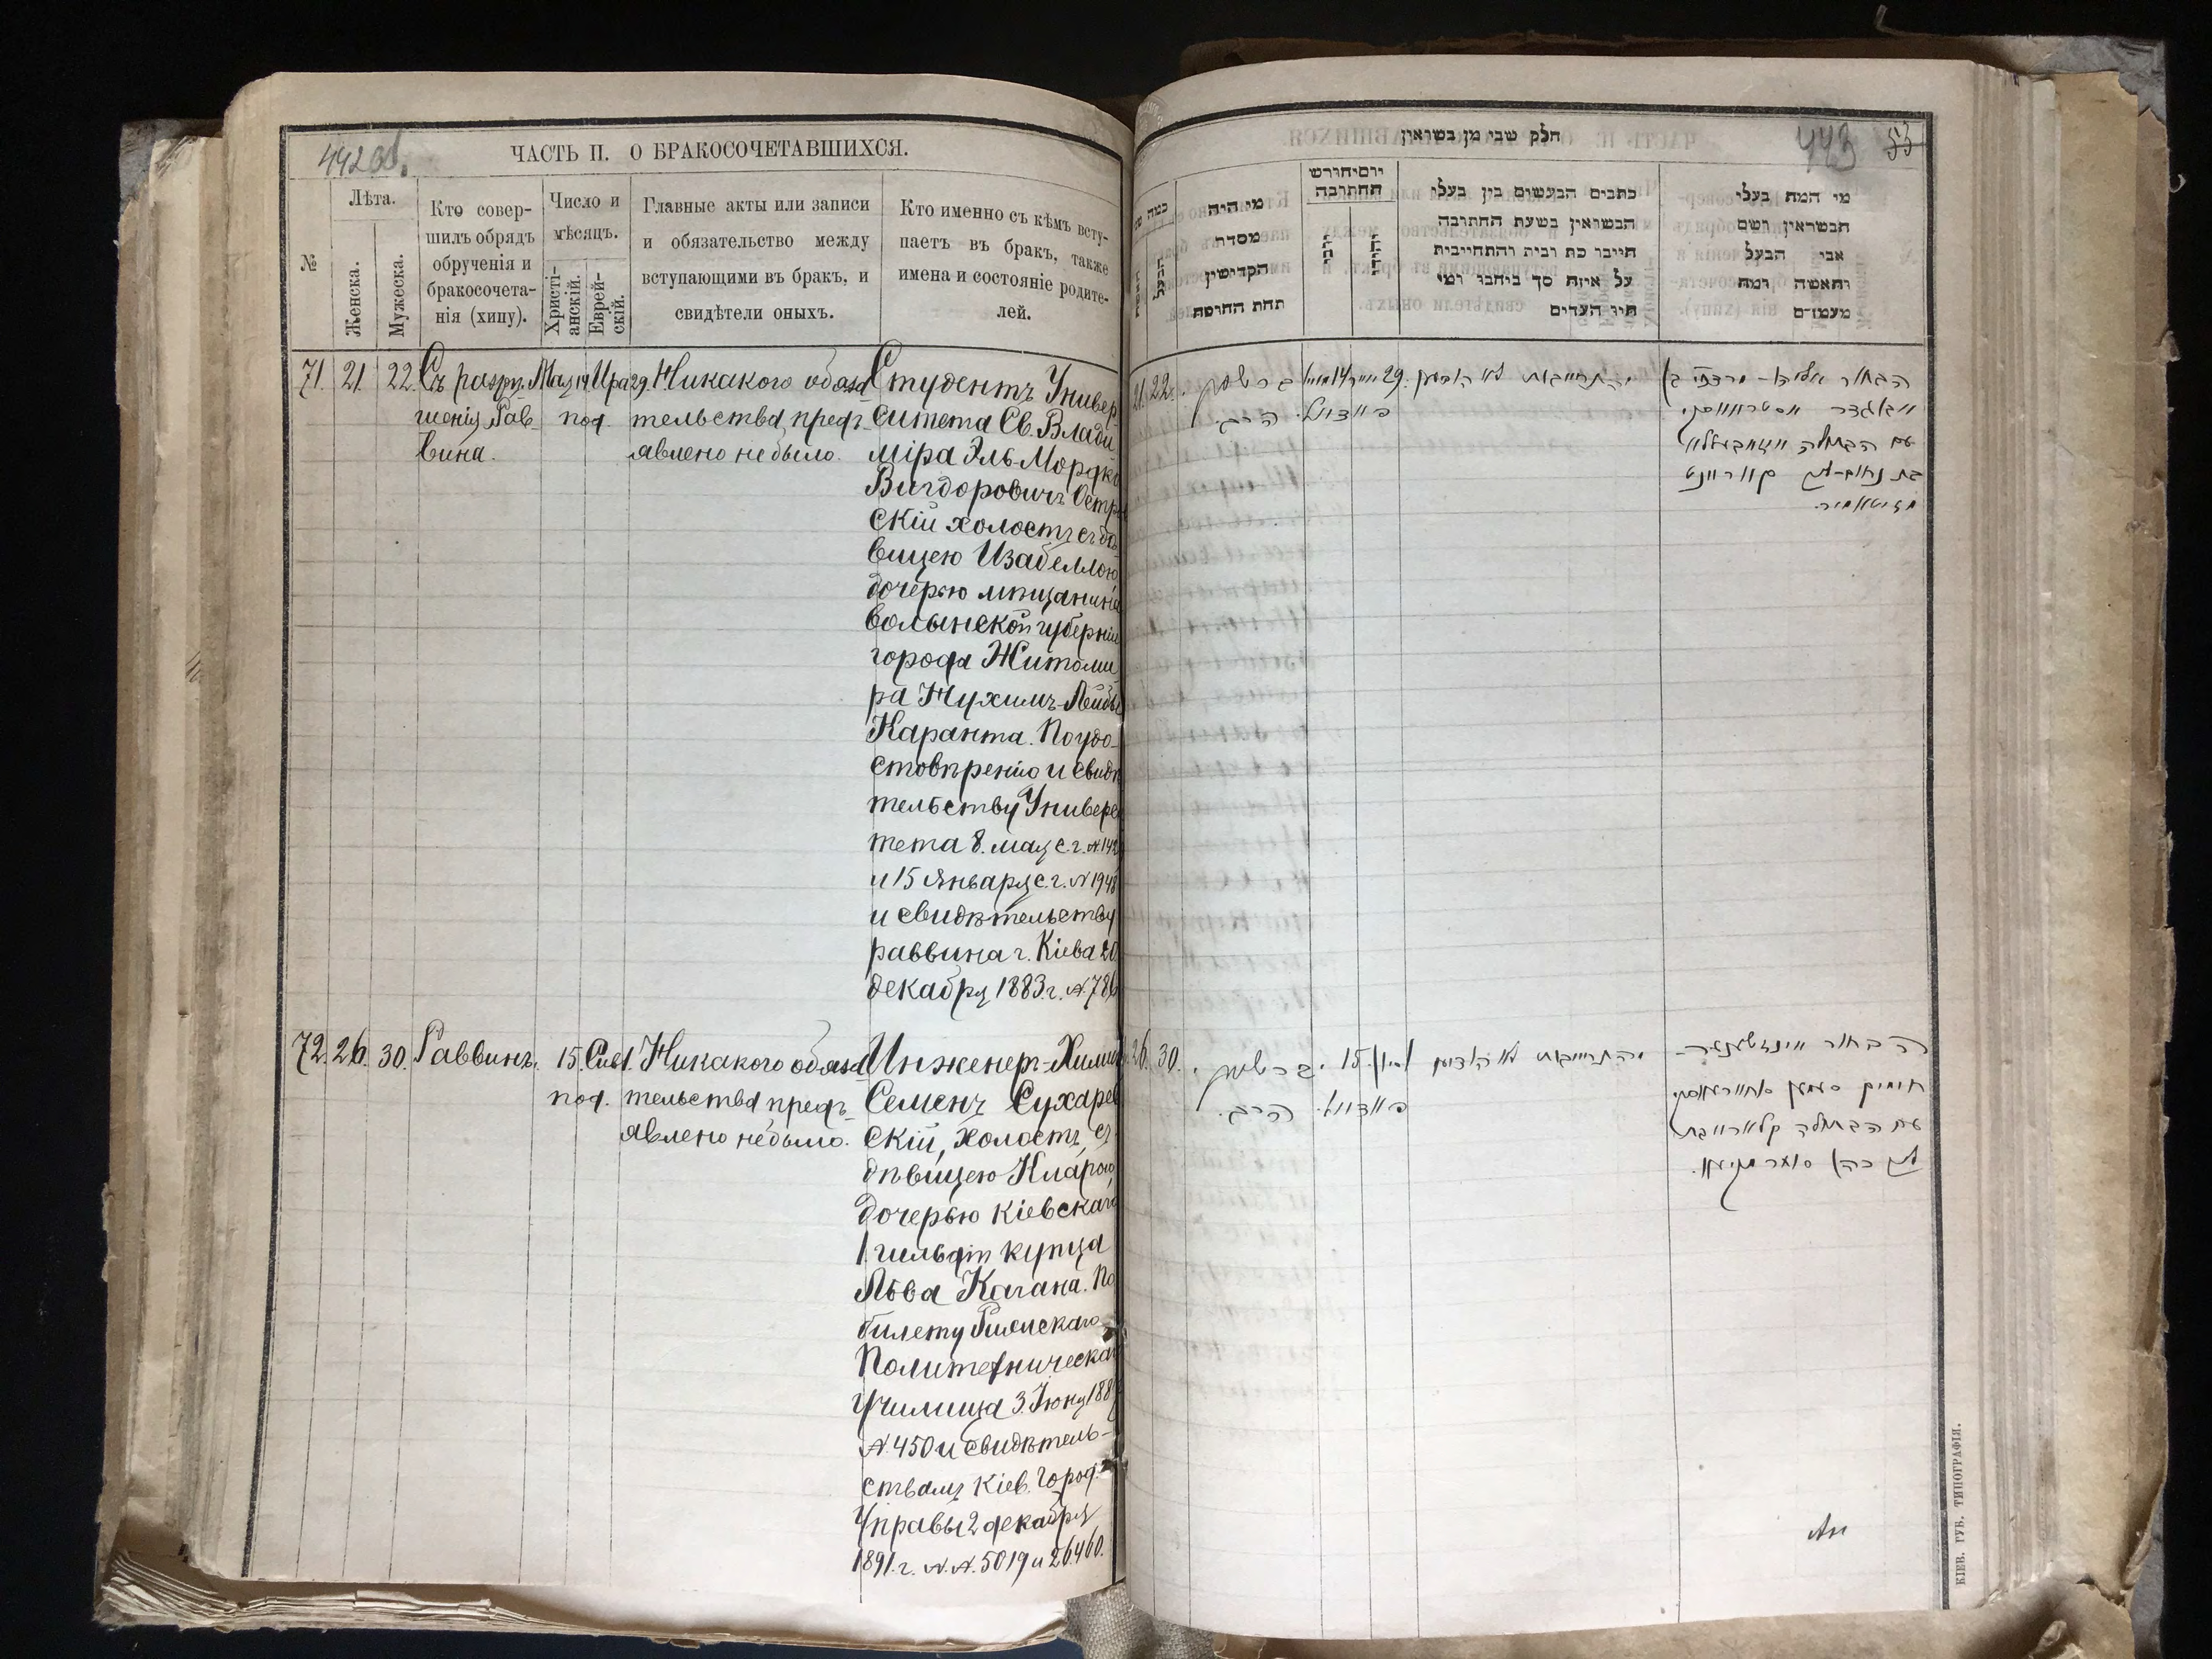 442 об.
ЧАСТЬ II. О БРАКОСОЧЕТАВШИХСЯ.
№
Лѣта.
Женска.
Мужеска.
Кто совер-
шилъ обрядъ
обрученія и
бракосочета-
нія (хипу).
Число и
мѣсяцъ.
Христі-
анскій.
Еврей-
скій.
Главные акты или записи
и обязательство между
вступающими въ бракъ, и
свидѣтели оныхъ.
Кто именно съ кѣмъ всту-
паетъ въ бракъ, также
имена и состояніе родите-
лей.
71. 21. 22.
Съ разрѣ-
шенія Рав-
вина.
Мая 14 Ира 29.
под.
Никакого обяза
тельства предъ-
явлено небыло.
Студентъ Универ
ситета Св. Влади
міра Эль Мордко
Вигдоровичъ Остр
скій холостъ съ дѣ
вицею Изабеллою
дочерью мѣщанина
Волынской губерніи
города Житоми
ра Нухимъ-Лейбы
Каранта. По удо-
стовѣренію и свидѣ
тельству Универси
тета 8. мая с.г. №142
и 15 Января с.г. №1948
и свидѣтельству
раввина г. Кіева 20
декабря 1883 г. №786
72. 26. 30.
Раввинъ.
15. Сив 1.
под.
Никакого обяза
тельства предъ-
явлено небыло.
Инженер-Хими
Семенъ Сухарев
скій, холостъ, съ
дѣвицею Кларою,
дочерью Кіевскаго
1 гильдіи купца
Льва Кагана. По
билету Рижскаго
Политехническаго
Училища 3. Іюня 188
№ 450 и свидѣтель-
ствамъ Кіев. Город.
Управы 2 декабря
1891 г. №№ 5019 и 26460.
443 53
חלק שני מן נשואין
מי המה בעלי
הנשואין ושם
אבי הבעל
והאשה ומה
מעמדם
כתבים הנעשים בין בעלי
הנשואין בשעת החתונה
חייבו כת וביה והתחייבות
על איזה סך ביחבו ומי
היו העדים
יום וחודש
החתונה
מי היה
מסדר
הקדישין
תחת החופה
21. 22.
14
29.
הרב.
והתחייבות לא הודיעו
הבחור אליהו-מרדכי בן
וויגדור אסטראווסקי
עם הבתולה איזאבעללא
בת נחום-ליב קאראנט
מזיטאמיר.
26. 30.
15.
הרב.
והתחייבות לא הודיעו
הבחור אינזשענער-
חימיק סעמען סוחאראווסקי
עם הבתולה קלארא בת
КІЕВ. ГУБ. ТИПОГРАФІЯ.